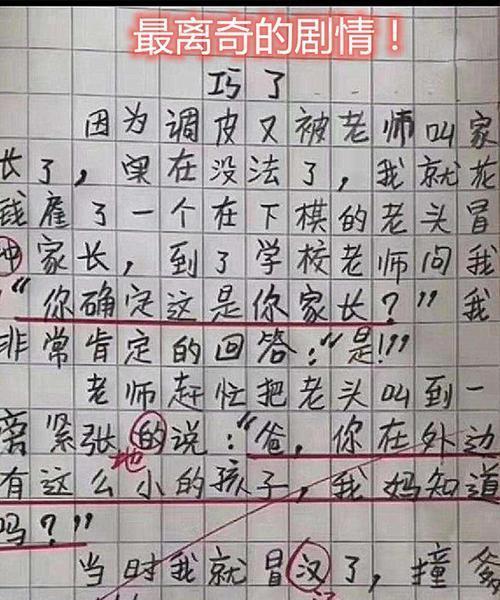 最离奇的剧情！
巧了
因为调皮又被老师叫家
长了，实在没法了，我就花
钱雇了一个在下棋的老头冒
冲家长，到了学校老师问我
“你确定这是你家长？”我
非常肯定的回答：“是!!!
老师赶忙把老头叫到一
离紧张的说：“爸，你在外边
地
有这么小的孩子，我妈知道
吗？”
当时我就冒汉了，撞